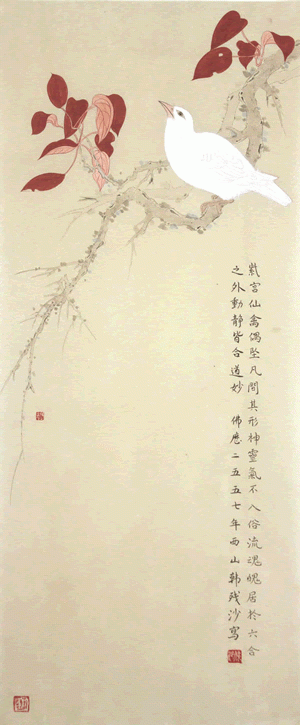 紫宫仙禽偶坠凡間其形神靈氣不入俗流魂魄居於六合
之外動靜皆合道妙 佛歷二五五七年西山韩残沙寫